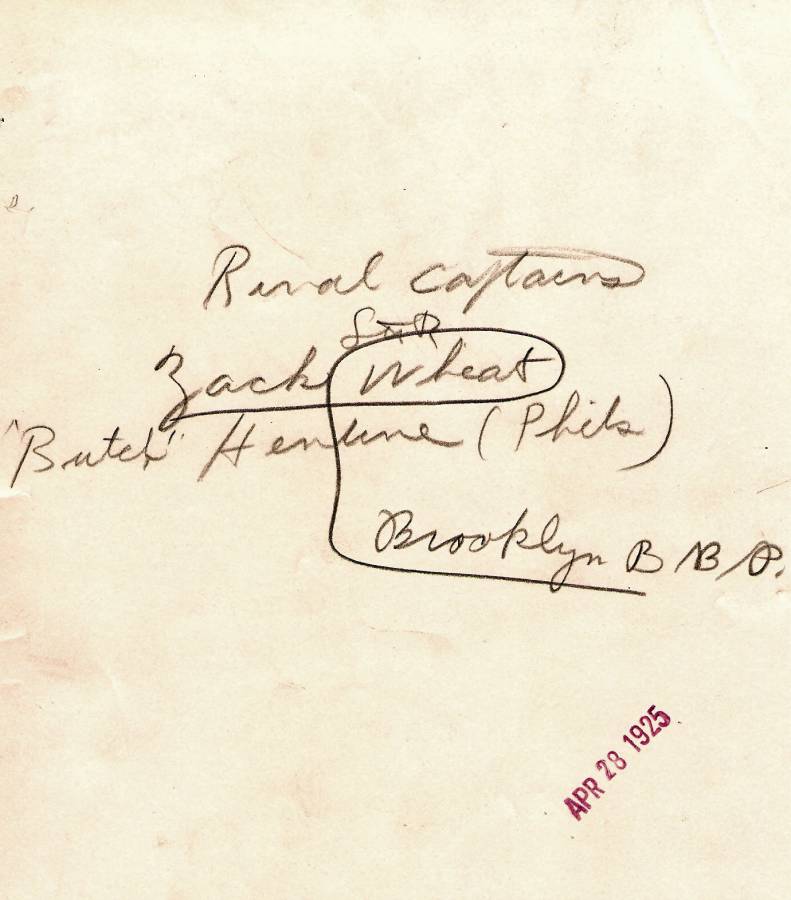 Rival Captains
L to R
Zack Wheat
"Butch" Henline (Phils)
Brooklyn B B P.
APR 28 1925